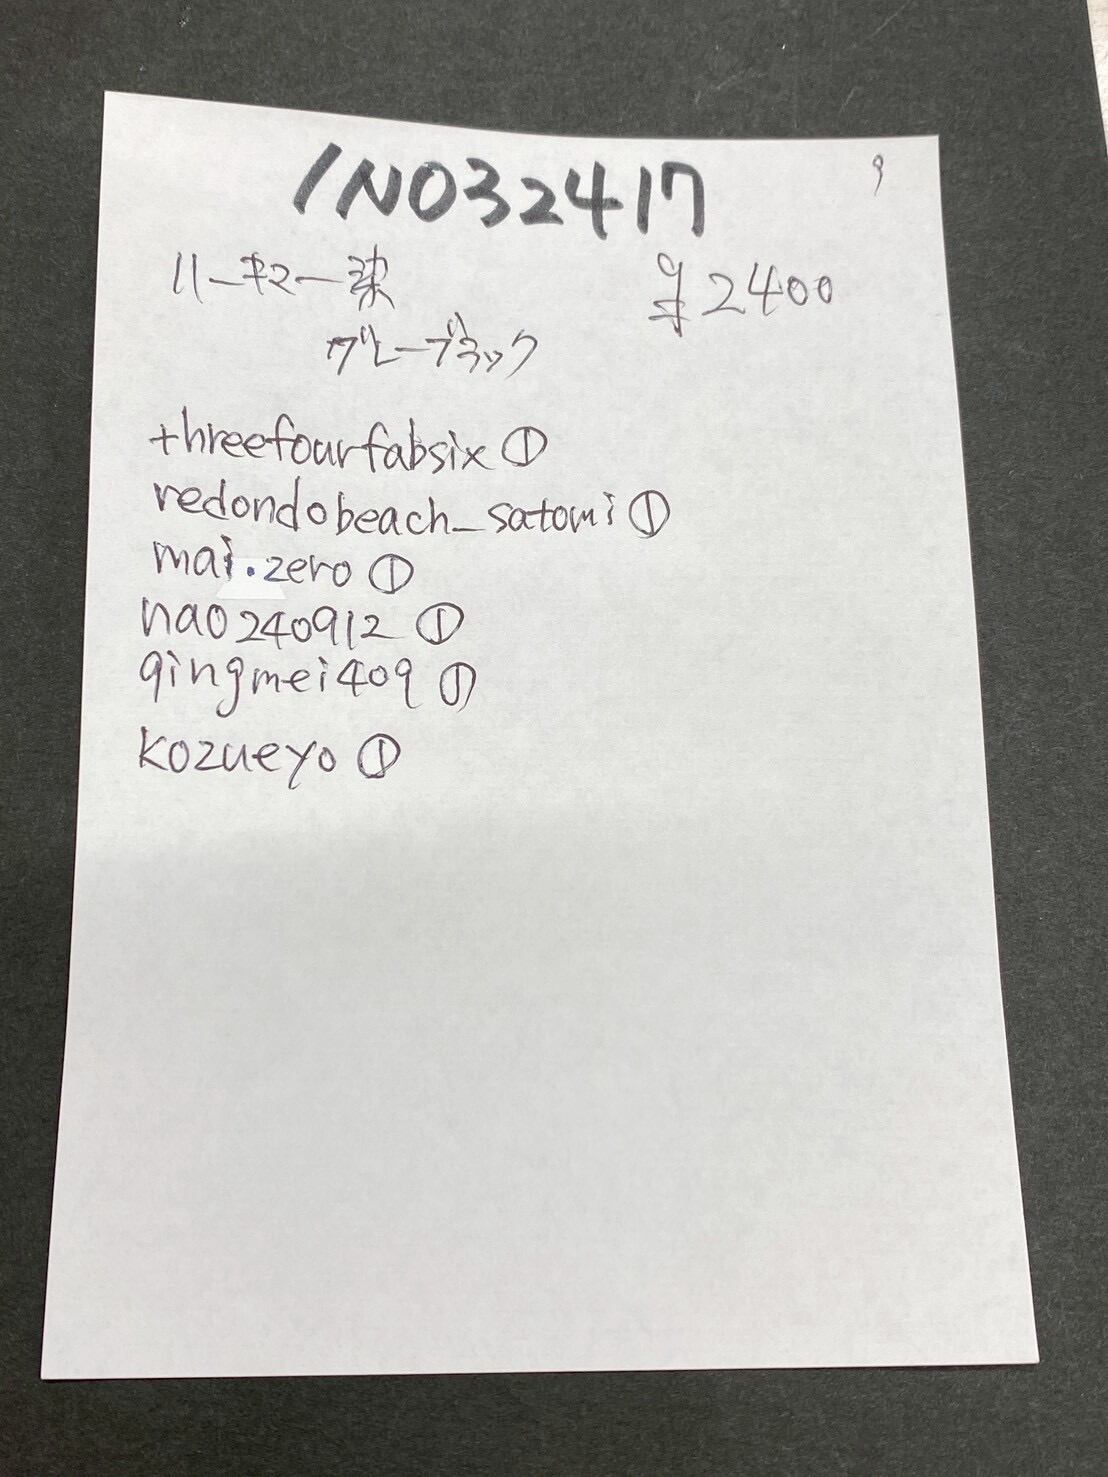 INO32417
9
ハーキマー染 ¥2400
グレーブラック
threefourfabsix ①
redondobeach_satomi ①
mai.zero ①
nao240912 ①
qingmei409 ①
kozueyo ①